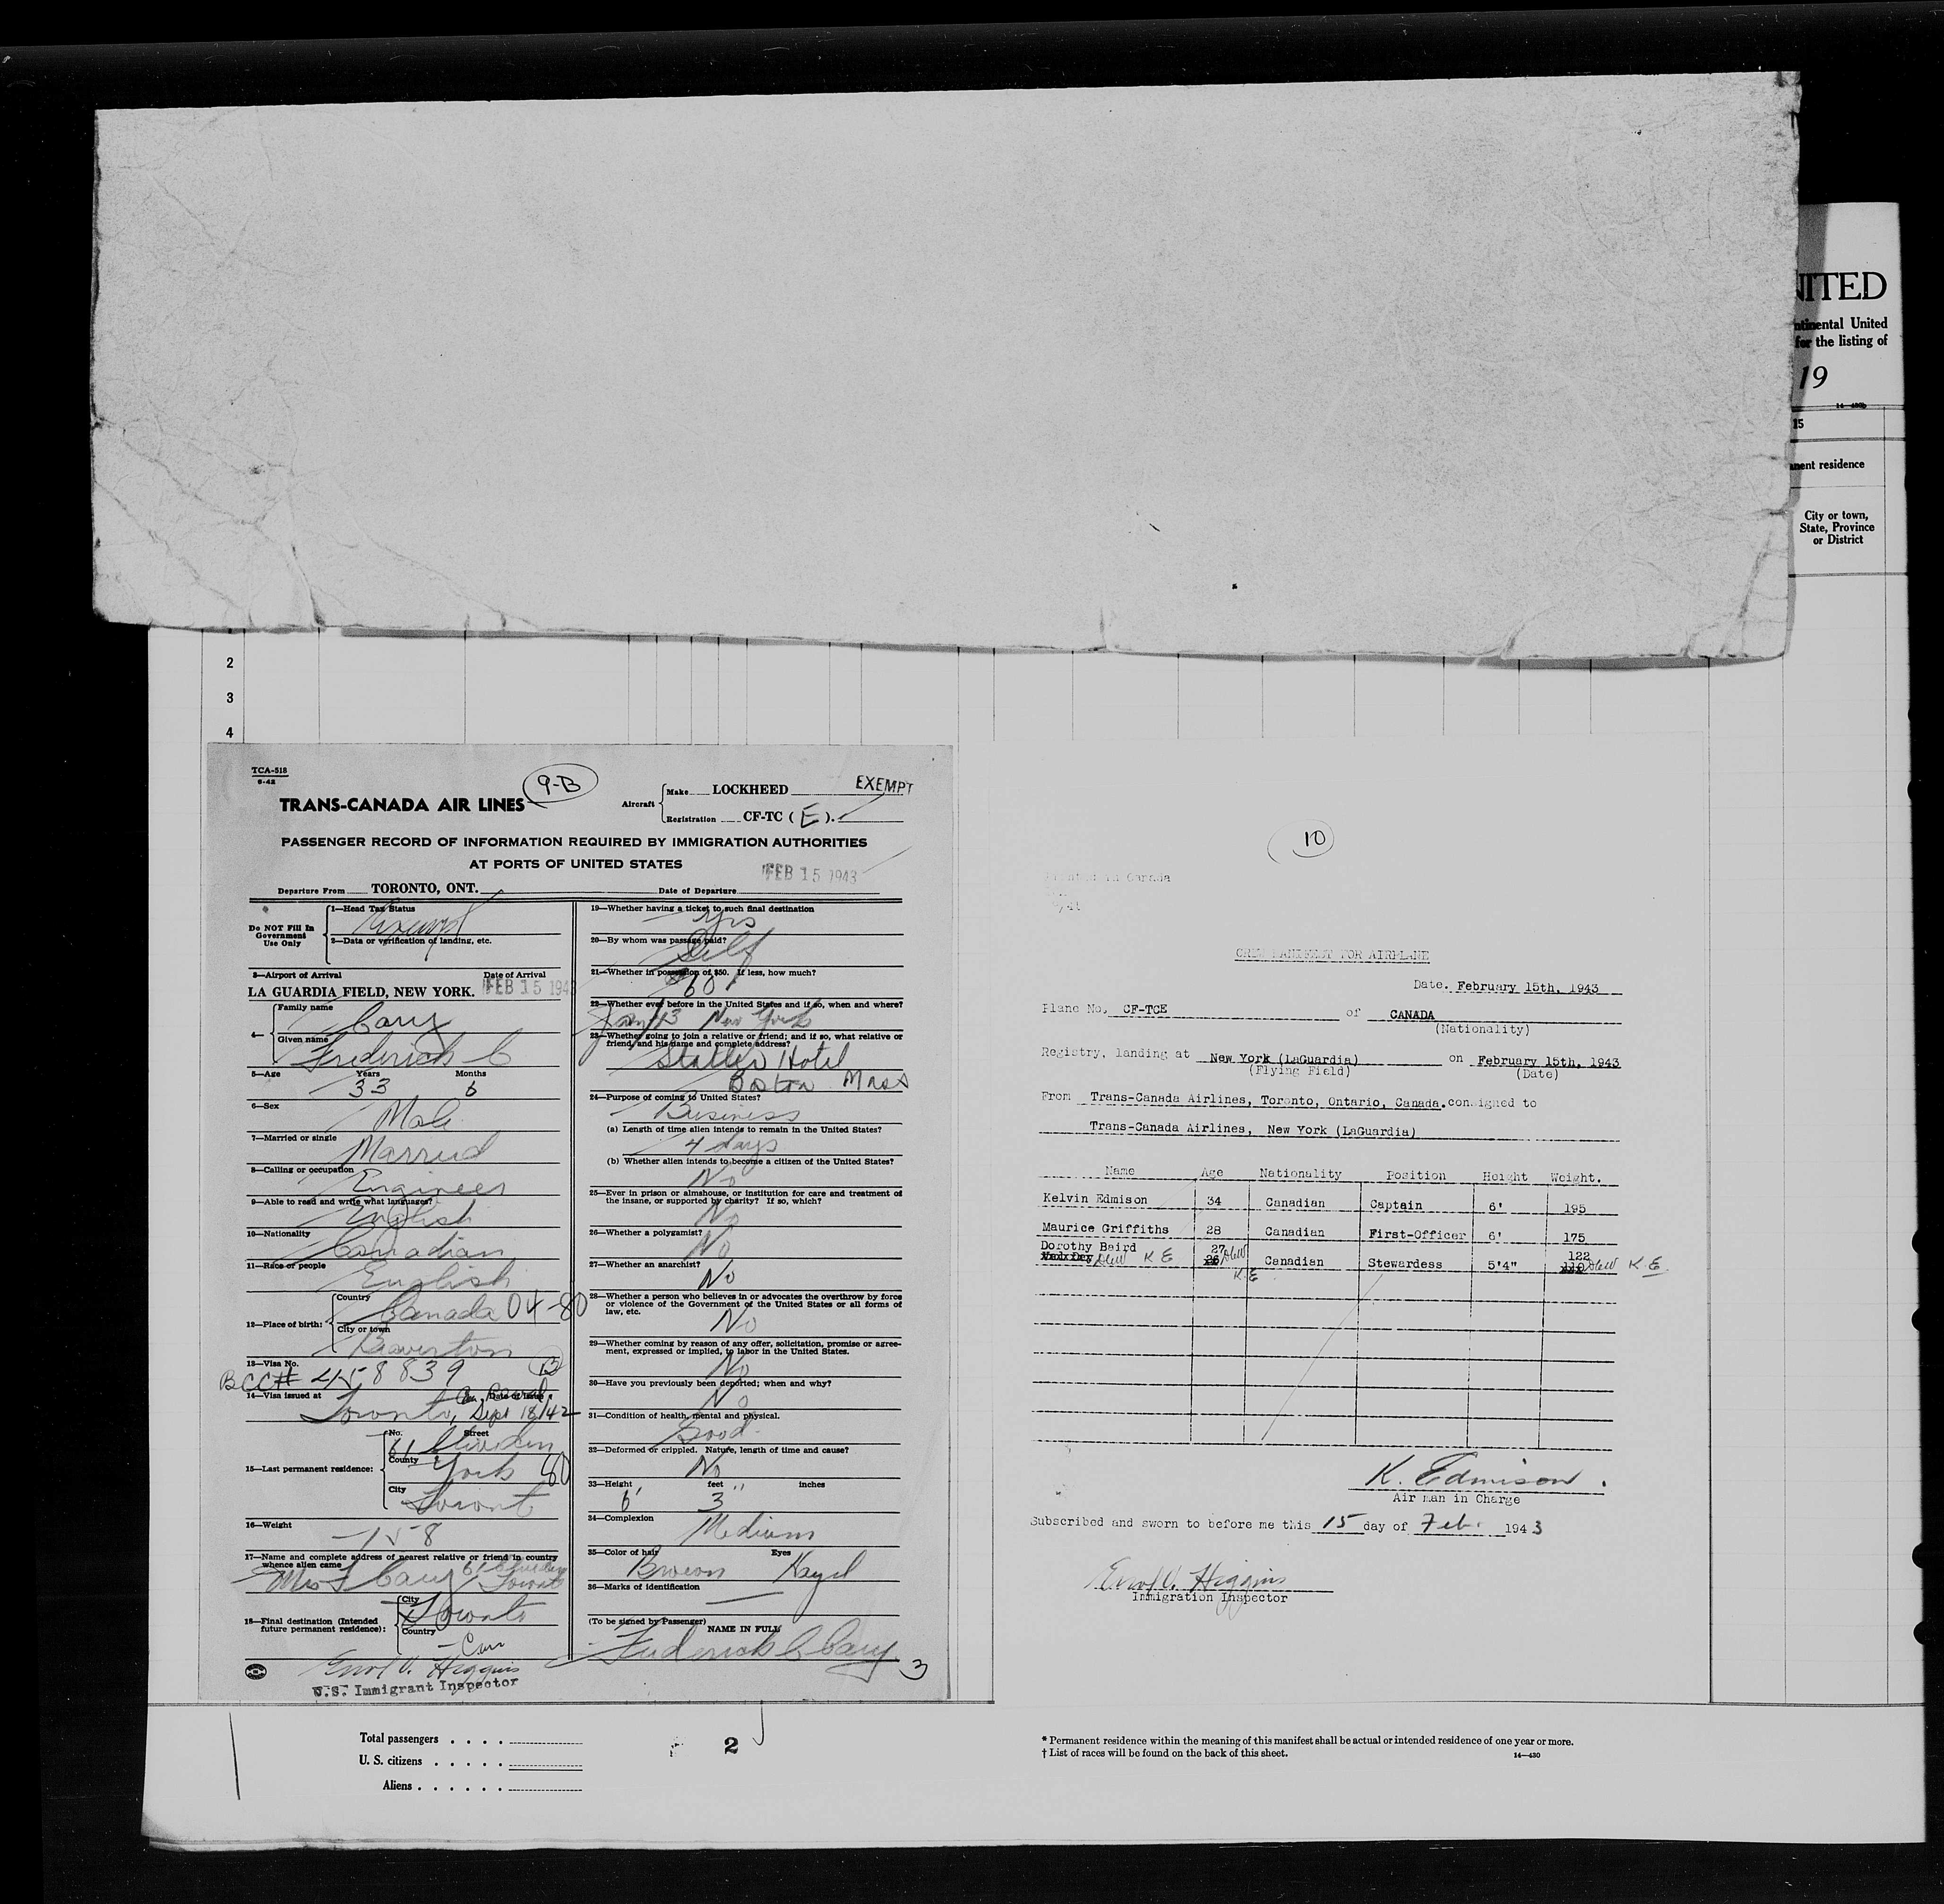 NITED
ntinental United
for the listing of
19
14—430b
15
anent residence
City or town,
State, Province
or District
2
3
4
TCA-518
6-42
9-B
TRANS-CANADA AIR LINES
Aircraft
Make LOCKHEED
EXEMPT
Registration CF-TC (E).
PASSENGER RECORD OF INFORMATION REQUIRED BY IMMIGRATION AUTHORITIES
AT PORTS OF UNITED STATES
FEB 15 1943
Departure From TORONTO, ONT. Date of Departure
Do NOT Fill In
Government
Use Only
1—Head Tax Status
Exempt
2—Data or verification of landing, etc.
3—Airport of Arrival Date of Arrival
LA GUARDIA FIELD, NEW YORK. FEB 15 194
4—
Family name
Cary
Given name
Frederick C
5—Age Years Months
33 6
6—Sex
Male
7—Married or single
Married
8—Calling or occupation
Engineer
9—Able to read and write what languages?
English
10—Nationality
Canadian
11—Race or people
English
12—Place of birth:
Country
Canada 04-80
City or town
Beaverton
13—Visa No.
BCC# 458839 B
14—Visa issued at Date of Issue
Toronto, Sept 18/42
15—Last permanent residence:
No. Street
61
County
York 80
City
Toronto
16—Weight
158
17—Name and complete address of nearest relative or friend in country
whence alien came
Mrs F Cary 61
Toronto
18—Final destination (Intended
future permanent residence):
City
Toronto
Country
Can
Errol V. Higgins
U.S. Immigrant Inspector
19—Whether having a ticket to such final destination
Yes
20—By whom was passage paid?
Self
21—Whether in possession of $50. If less, how much?
60
22—Whether ever before in the United States and if so, when and where?
Jan/43 New York
23—Whether going to join a relative or friend; and if so, what relative or
friend, and his name and complete address?
Statler Hotel
Boston Mass
24—Purpose of coming to United States?
Business
(a) Length of time alien intends to remain in the United States?
4 days
(b) Whether alien intends to become a citizen of the United States?
No
25—Ever in prison or almshouse, or institution for care and treatment of
the insane, or supported by charity? If so, which?
No
26—Whether a polygamist?
No
27—Whether an anarchist?
No
28—Whether a person who believes in or advocates the overthrow by force
or violence of the Government of the United States or all forms of
law, etc.
No
29—Whether coming by reason of any offer, solicitation, promise or agree-
ment, expressed or implied, to labor in the United States.
No
30—Have you previously been deported; when and why?
No
31—Condition of health, mental and physical.
Good
32—Deformed or crippled. Nature, length of time and cause?
No
33—Height, feet inches
6' 3"
34—Complexion
Medium
35—Color of hair Eyes
Brown Hazel
36—Marks of identification
(To be signed by Passenger) NAME IN FULL
Frederick C Cary
3
10
Printed in Canada
CREW MANIFEST FOR AIRPLANE
Date. February 15th, 1943
Plane No. CF-TCE of CANADA
(Nationality)
Registry, landing at New York (LaGuardia) on February 15th, 1943
(Flying Field) (Date)
From Trans-Canada Airlines, Toronto, Ontario, Canada. consigned to
Trans-Canada Airlines, New York (LaGuardia)
Name Age Nationality Position Height Weight.
Kelvin Edmison 34 Canadian Captain 6' 195
Maurice Griffiths 28 Canadian First-Officer 6' 175
Dorothy Baird 27 Canadian Stewardess 5'4" 122
K E
K.E
K.E.
K. Edmison.
Air man in Charge
Subscribed and sworn to before me this 15 day of Feb. 1943
Errol V. Higgins
Immigration Inspector
Total passengers
U. S. citizens
Aliens
2
* Permanent residence within the meaning of this manifest shall be actual or intended residence of one year or more.
† List of races will be found on the back of this sheet. 14—430